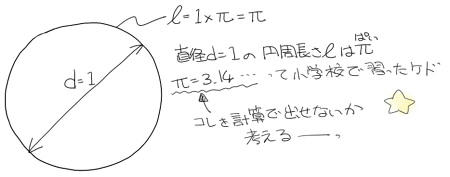 ℓ=1×π=π
d=1
直径d=1の円周長さℓはπ
ぱい
π=3.14……って小学校で習ったケド
コレを計算で出せないか
考える――っ